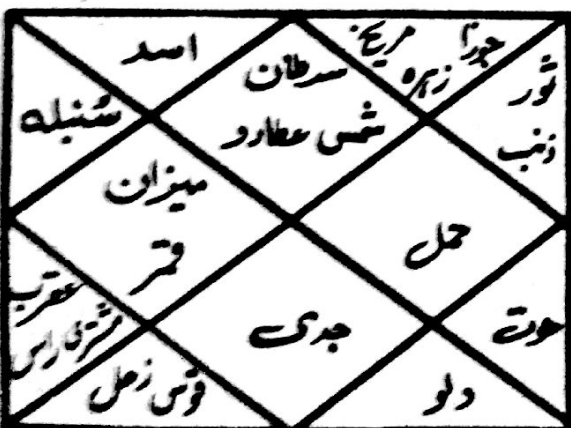 اسد
سرطان
شمس عطارو
جوزا
مریخ
زہرہ
ثور
ذنب
سنبلہ
میزان
قمر
حمل
عقرب
مشتری راس
جدی
حوت
قوس زحل
دلو